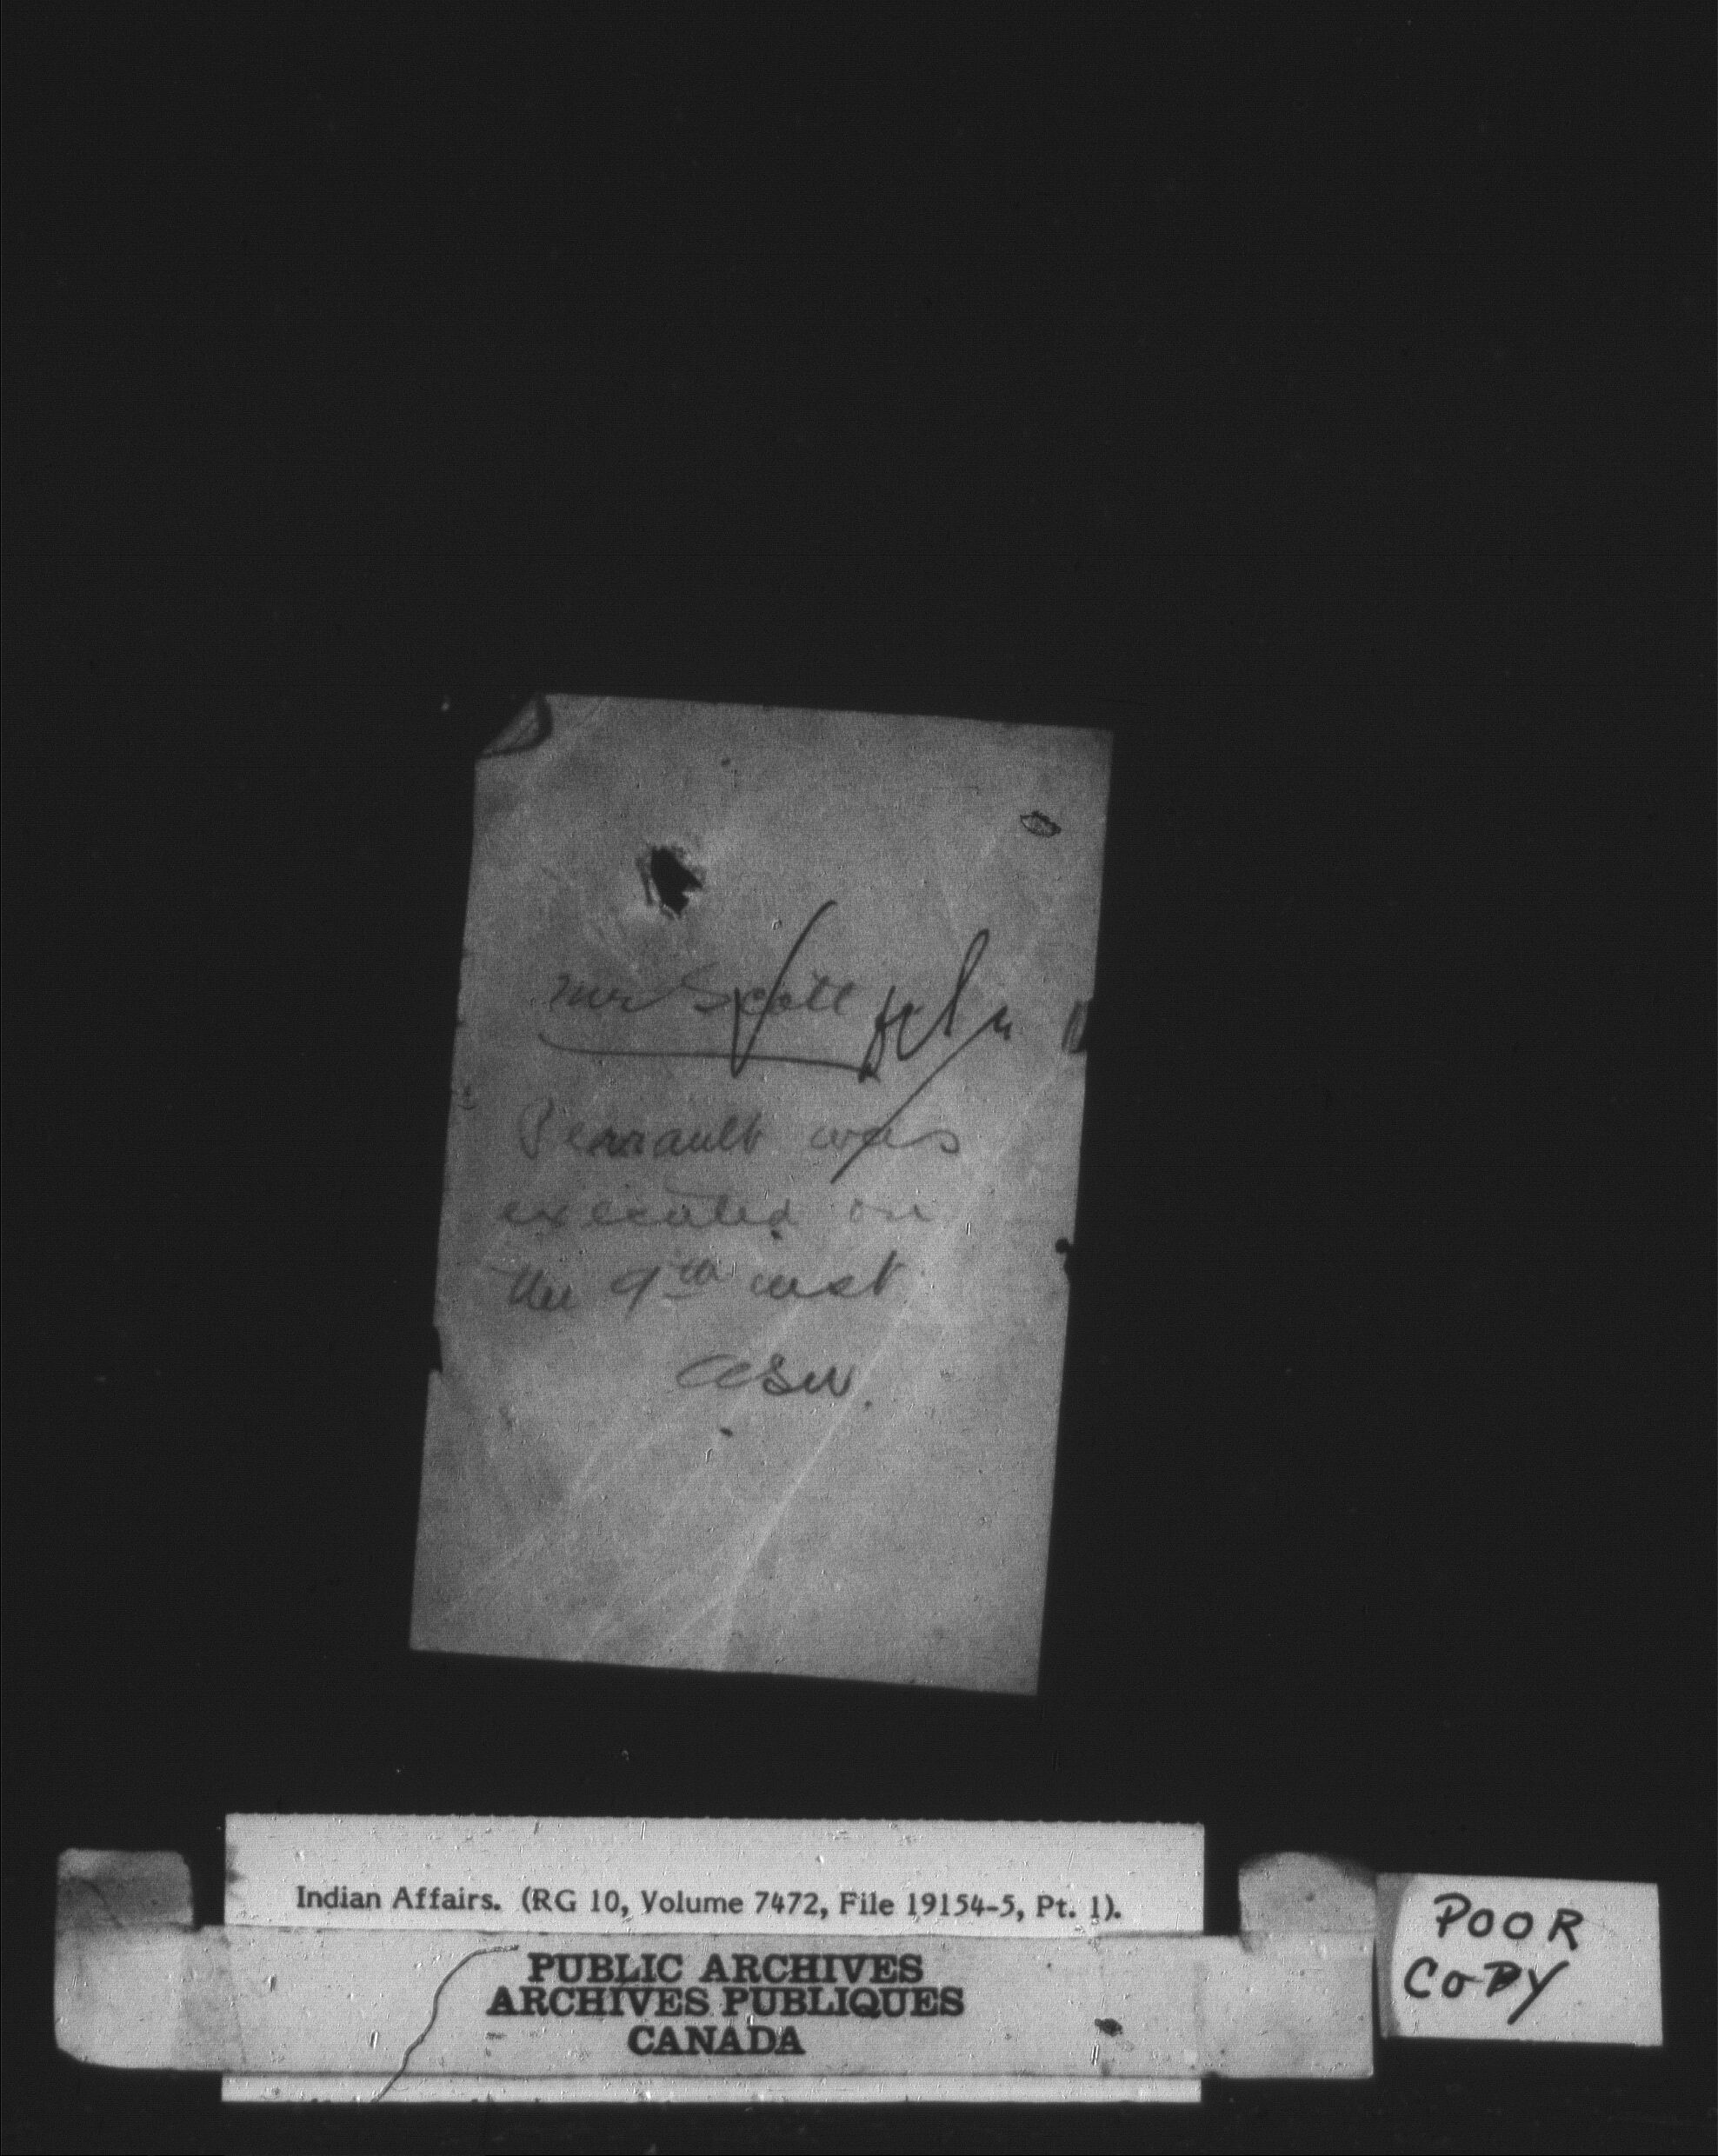 Mr Scott
Perrault was
executed on
the 9th inst
ASW.
Indian Affairs. (RG 10, Volume 7472, File 19154-5, Pt. 1).
PUBLIC ARCHIVES
ARCHIVES PUBLIQUES
CANADA
POOR
COPY